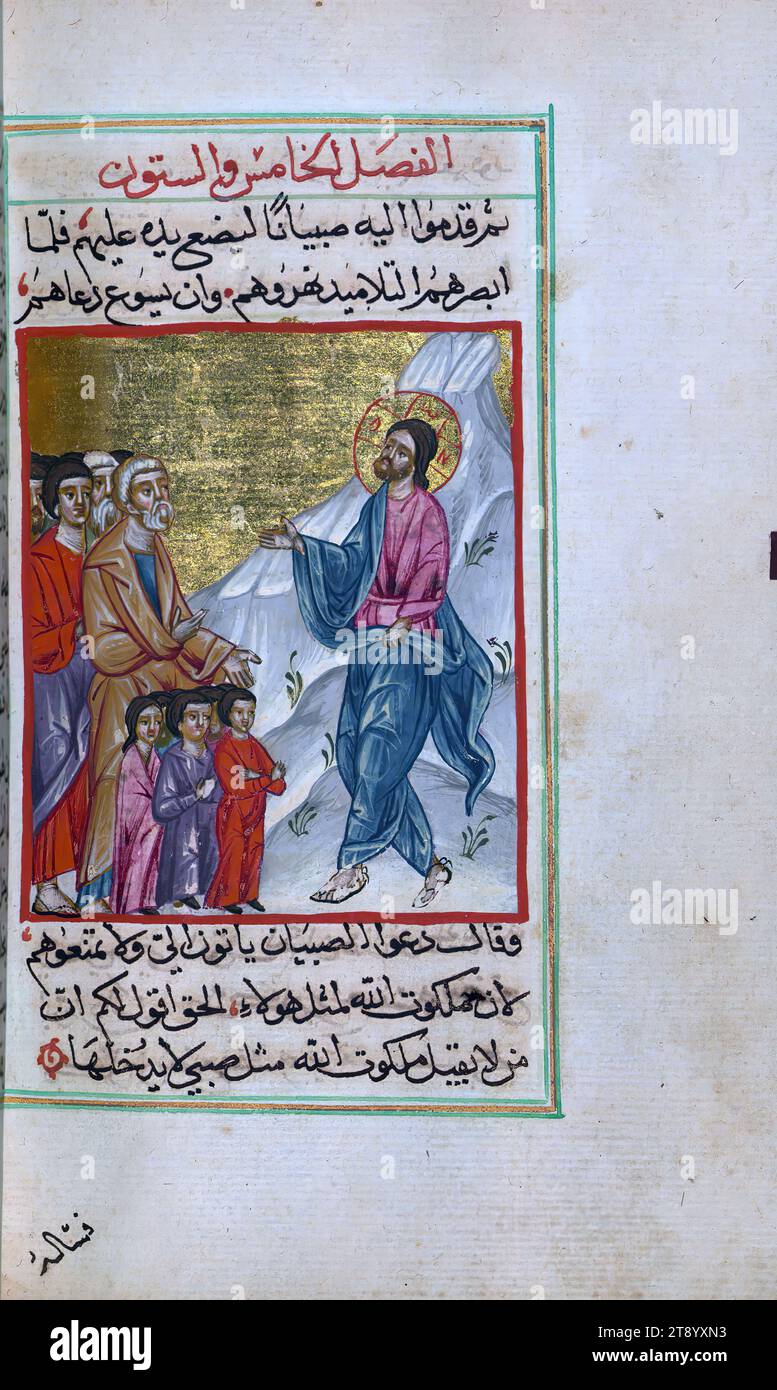 الفصل الخامس والستون
ثم قدموا اليه صبيانًا ليضع يده عليهم فلمّا
ابصرهم التلاميذ نهروهم وان يسوع دعاهم
وقال دعوا الصبيان ياتون اليّ ولا تمنعوهم
لان ملكوت الله لمثل هولاء الحق اقول لكم انّ
من لا يقبل ملكوت الله مثل صبي لا يدخلها
فساله
alamy
alamy
Image ID: 2T8YXN3
www.alamy.com